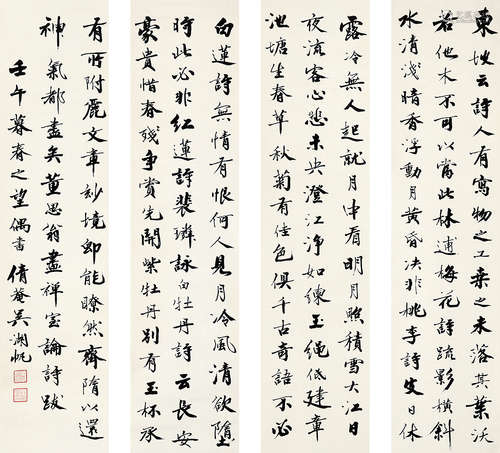 東坡云詩人有寫物之工桑之未落其葉沃
若他木不可以當此林逋梅花詩疏影橫斜
水清淺暗香浮動月黃昏決非桃李詩皮日休
白蓮詩無情有恨何人見月冷風清欲墮
時此必非紅蓮詩裴璘詠白牡丹詩云長安
豪貴惜春殘爭賞先開紫牡丹別有玉杯承
露冷無人起就月中看明月照積雪大江日
夜流客心悲未央澄江淨如練玉繩低建章
池塘生春草秋菊有佳色俱千古奇語不必
有所附麗文章妙境即能瞭然齊隋以還
神氣都盡矣董思翁畫禪室論詩跋
壬午暮春之望偶書 倩菴吳湖帆